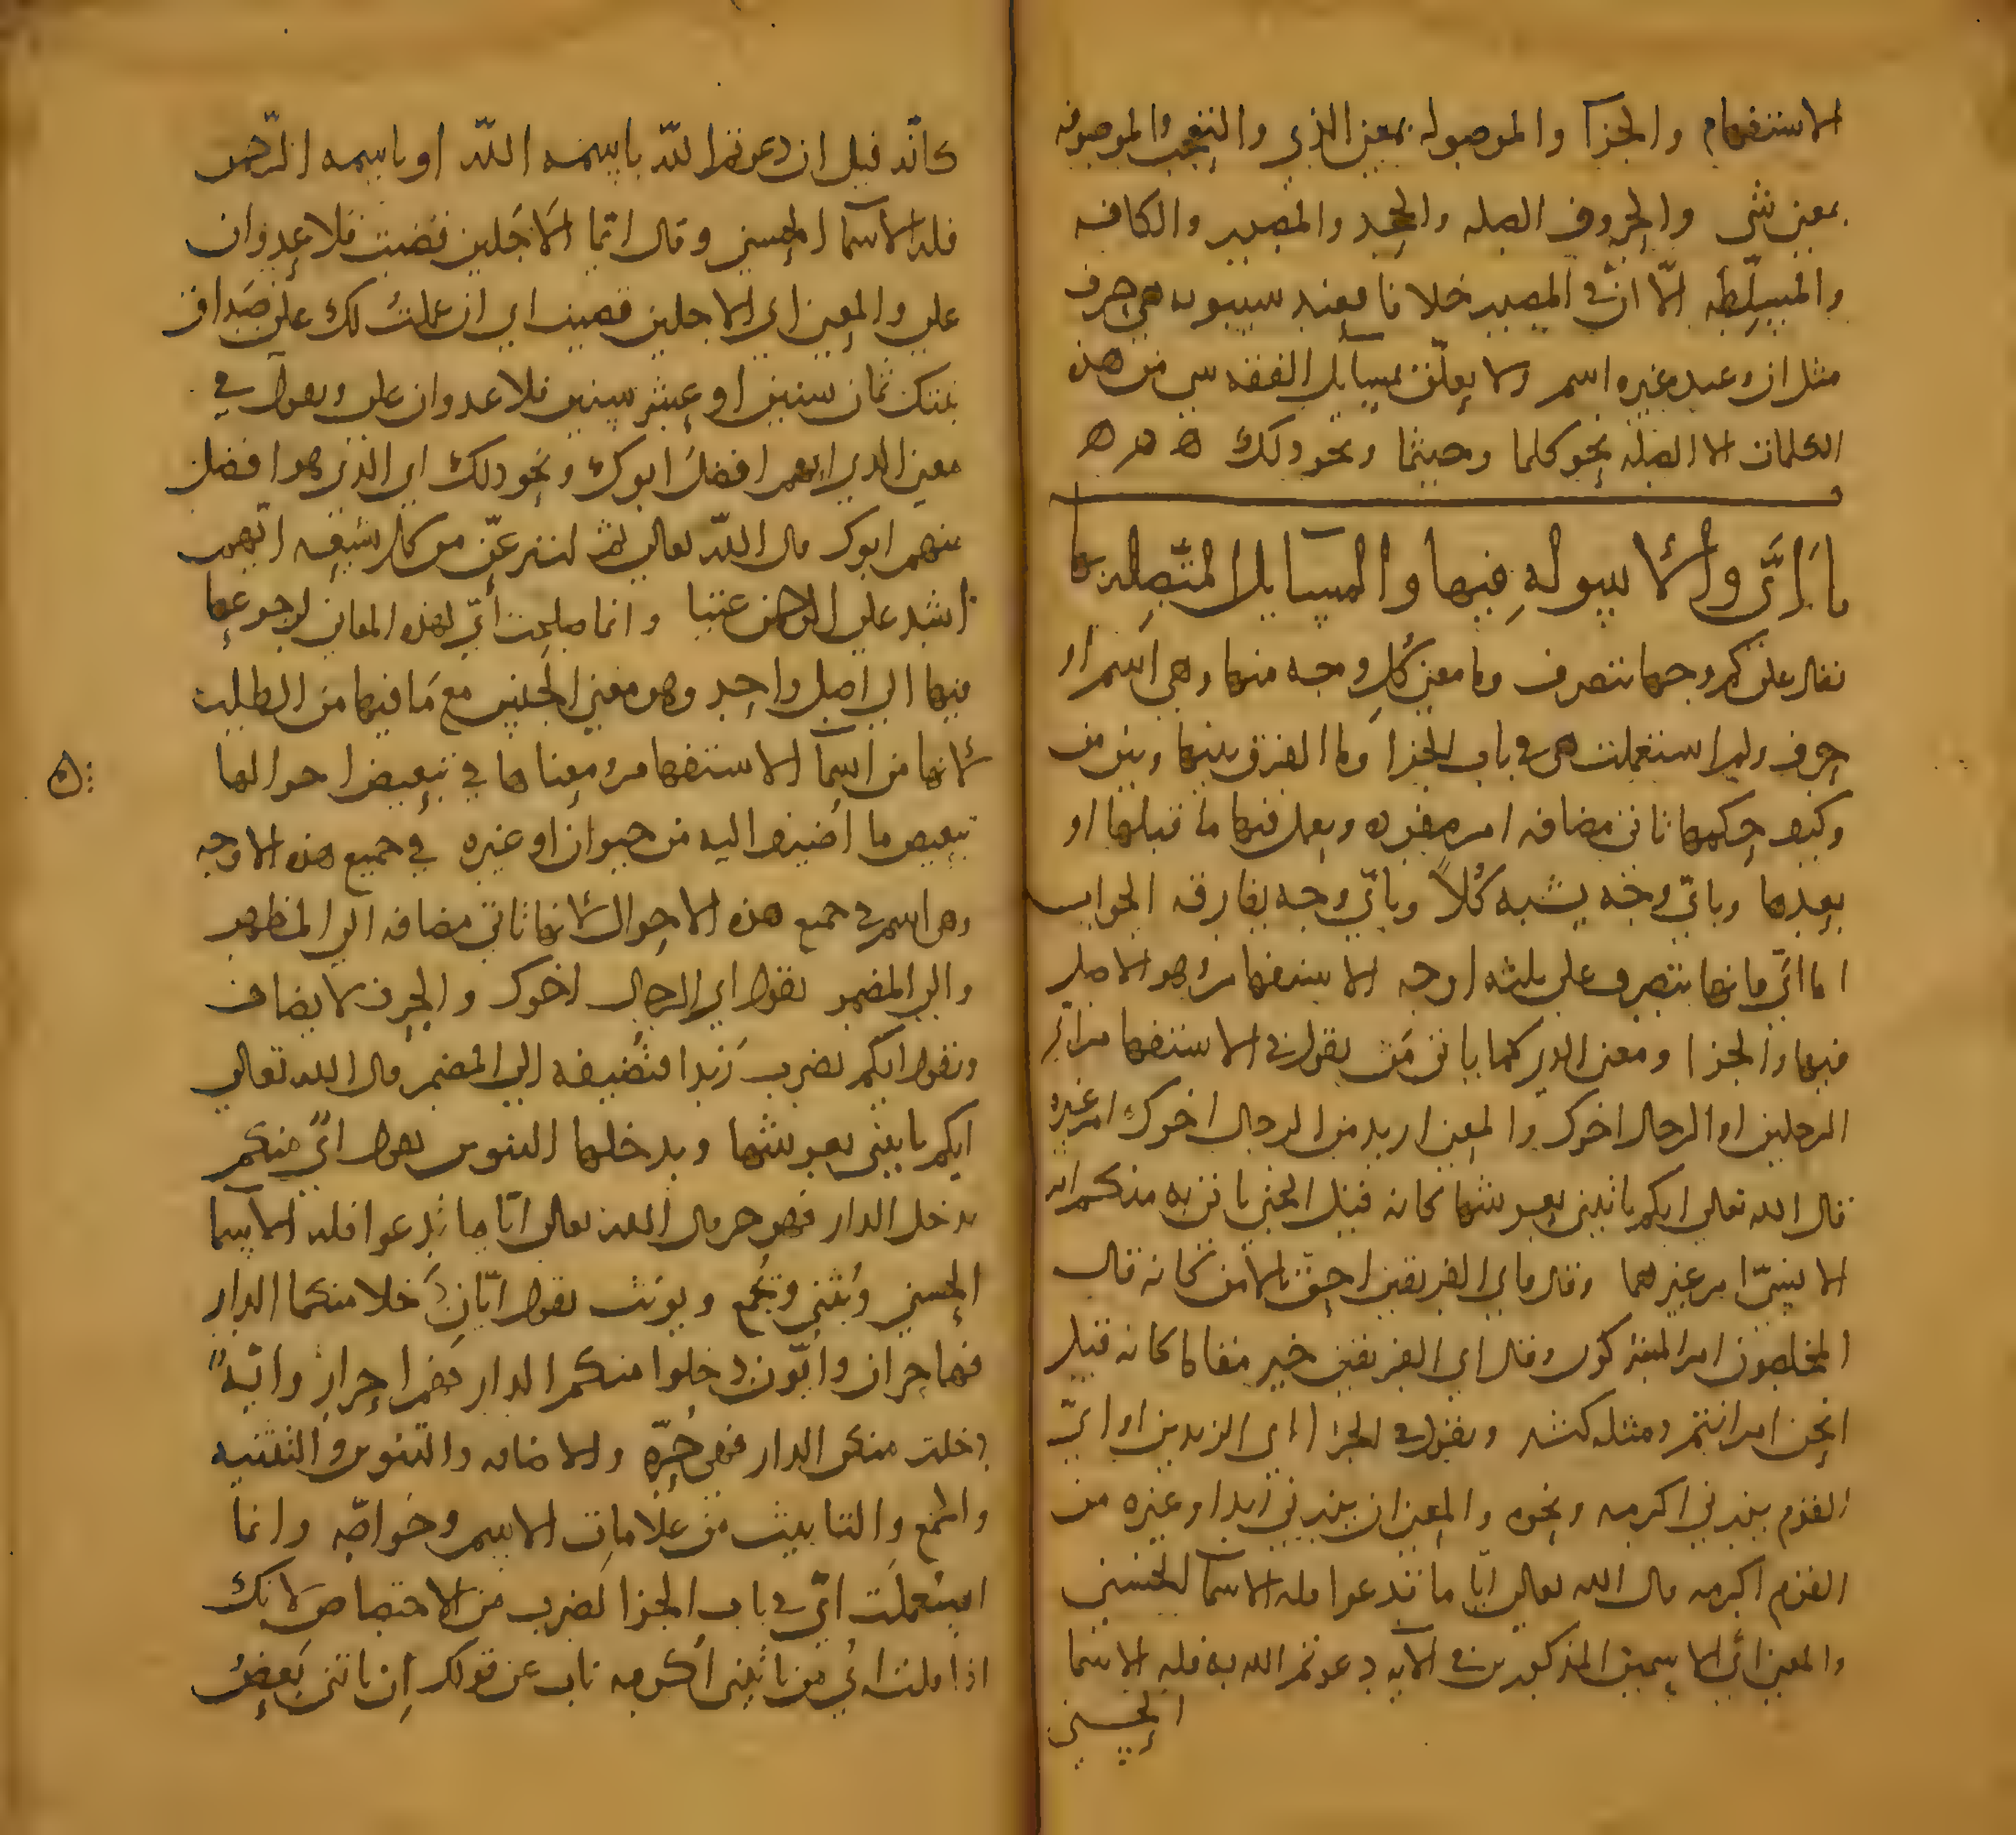 الاستفهام والجزا والموصوله بمعنى الذي والتعجب والموصوفه
بمعنى شي والحروف الصله والجحد والمصدر والكافه
والمسلطه الّا انّ في المصدر خلافا فعند سيبويه هي حرف
مثل ان وعند غيره اسم ولا يعلّق بمسايل الفقه من هذه
الكلمات الا الصله نحو كلما وحيثما ونحو ذلك ه ه ه
باب أيّ والاسوله فيها والمسايل المتّصله بها
يقال على كم وجها تتصرف وما معنى كُلّ وجه منها وهي اسم او
حرف ولم استعملت هي في باب الجزا وما الفرق بينها وبين من
وكيف حكمها تاتي مضافه ام مفرده ويعمل فيها ما قبلها او
بعدها وباىّ وجه يشبه كُلاً وباىّ وجه يفارقه الجواب
اما ايّ فانها تتصرف على ثلثه اوجه الاستفهام وهو الاصل
فيها والجزا ومعنى الذي كما ياتى مَن تقول في الاستفهام اي
الرجلين او الرجال اخوك والمعنى ازيد من الرجال اخوك ام غيره
قال الله تعالى ايكم ياتيني بعرشها كانه قيل الجني ياتي به منكم ام
الانسىّ ام غيرهما وقال فاي الفريقين احق بالامن كانه قال
المخلصون ام المشركون وقال اي الفريقين خير مقاما كانه قيل
انحن ام انتم ومثله كثير وتقول في الجزا اي الزيدين او ايّ
القوم يزرني اكرمه ونحوه والمعنى ان يزرني زيد او غيره من
القوم اكرمه قال الله تعالى ايّا ما تدعوا فله الاسما الحسنى
والمعنى ايّ الاسمين المذكورين في الآيه دعوتم الله به فله الاسما
الحسنى
كانّه قيل ان دعوتم اللّه باسمه اللّه او باسمه الرّحمن
فله الاسما الحسنى وقال ايّما الاجلين قضيت فلا عدوان
علي والمعنى اي الاجلين قضيت اي ان عملت لك على صداق
بنتك ثمان سنين او عشر سنين فلا عدوان علي وتقول في
معنى الذي ايهم افضل ابوك ونحو ذلك اي الذي هو افضل
منهم ابوك قال اللّه تعالى ثم لننزعنّ من كل شيعه ايّهم
اشد على الرحمن عتيا وانما صلحت أيّ لهذه المعاني لرجوعها
فيها الى اصل واحد وهو معنى الجنس مع مَا فيها من الطلب
لانها من اسما الاستفهام ومعناها في تبعيض احوالها
تبعيض ما اضيف اليه من حيوان او غيره في جميع هذه الاوجه
وهي اسم في جميع هذه الاحوال لانها تاتي مضافه الى المظهر
والى المضمر تقول اي الرجال اخوك والحرف لا يضاف
وتقول ايكم تضرب زيدا فتُضيفه الى المضمر قال الله تعالى
ايكم ياتيني بعرشها ويدخلها التنوين تقول ايٌّ منكم
يدخل الدار فهو حر قال الله تعالى ايّا ما تدعوا فله الاسما
الحسنى وتُثنى وتُجمع وتونث تقول ايّانِ دَخلا منكما الدار
فهما حران وايّون دخلوا منكم الدار فهم احرار وايّةٌ
دخلت منكن الدار فهي حُرّه والاضافه والتنوين والتثنيه
والجمع والتانيث من علامات الاسم وخواصّه وانما
استُعملَت ايّ في باب الجزا لضرب من الاختصاص لانك
اذا قلت ايُّ من ياتيني اُكرمه ناب عن قولك اِن ياتني بَعضُ